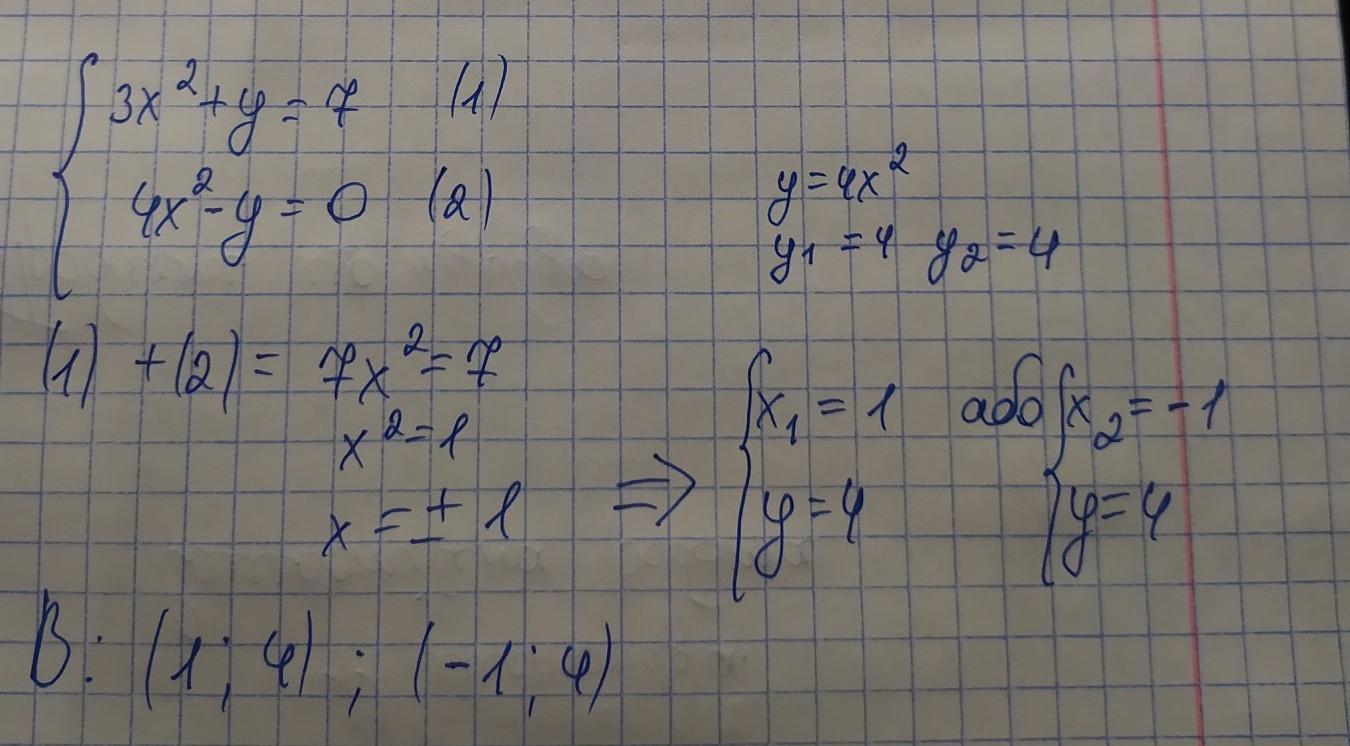 3x² + y = 7 (1)
4x² - y = 0 (2)
y = 4x²
y₁ = 4 y₂ = 4
(1) + (2) = 7x² = 7
x² = 1
x = ± 1
⇒
x₁ = 1 або x₂ = -1
y = 4 y = 4
В: (1; 4) ; (-1; 4)